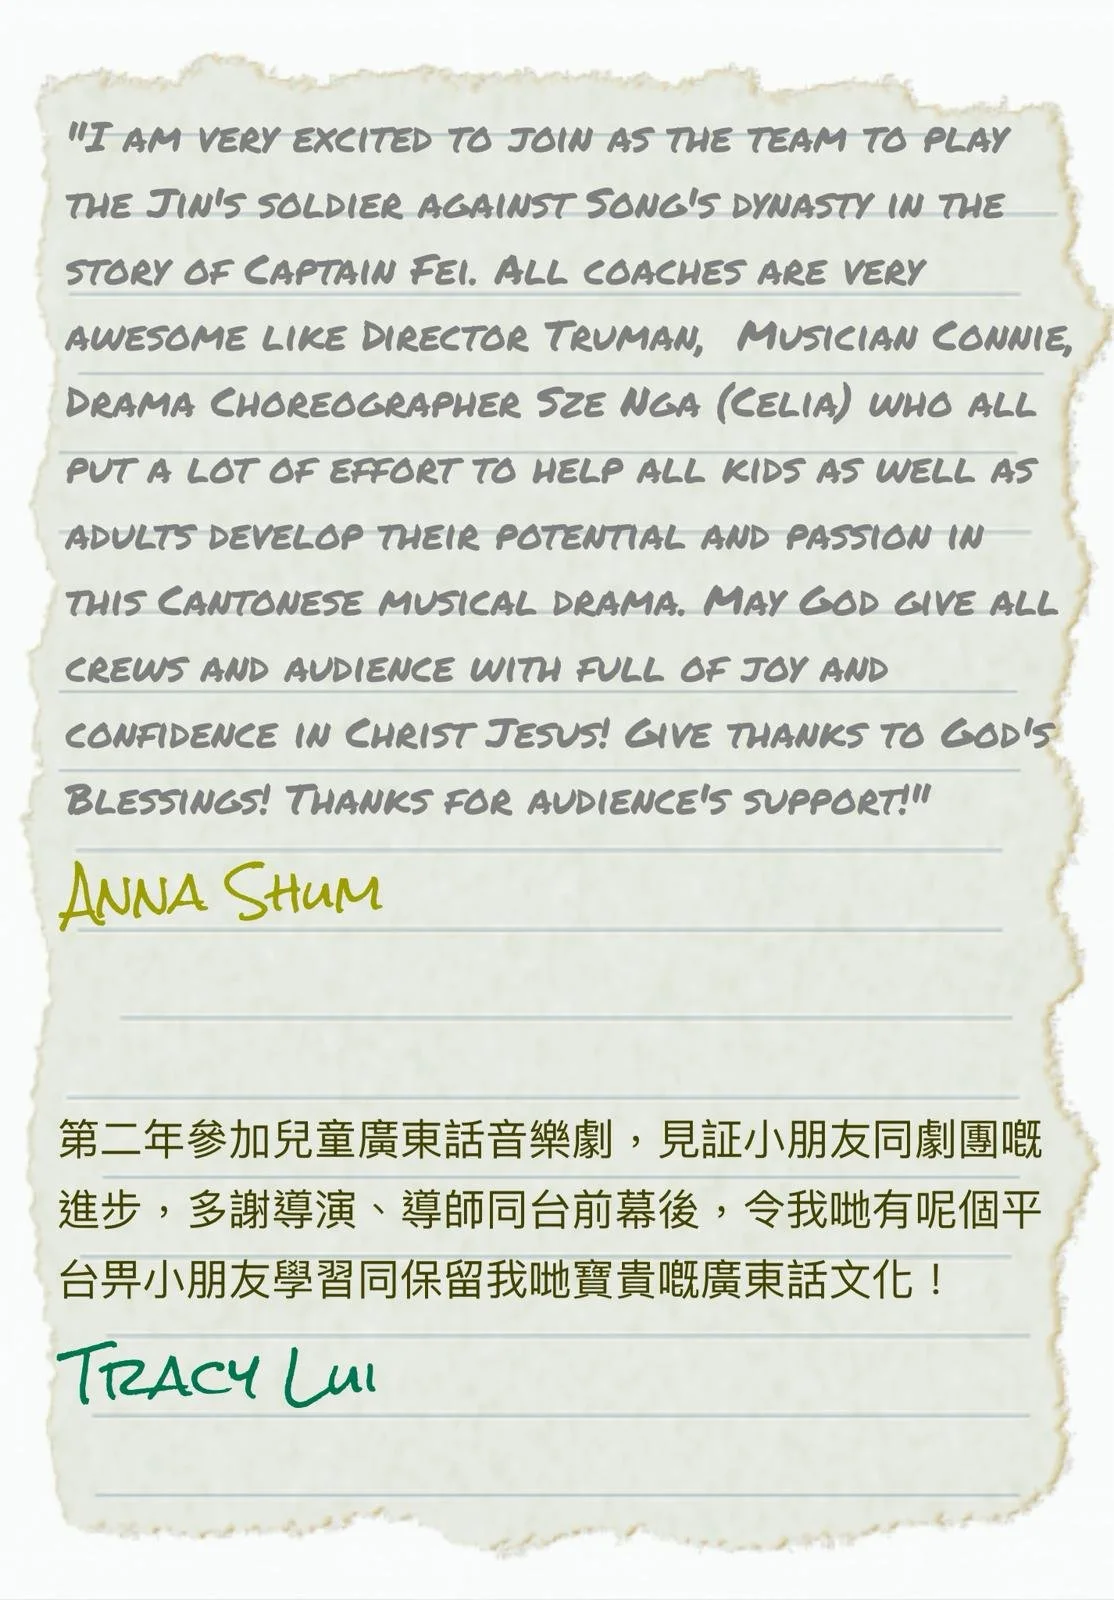 "I am very excited to join as the team to play
the Jin's soldier against Song's dynasty in the
story of Captain Fei. All coaches are very
awesome like Director Truman,  Musician Connie,
Drama Choreographer Sze Nga (Celia) who all
put a lot of effort to help all kids as well as
adults develop their potential and passion in
this Cantonese musical drama. May God give all
crews and audience with full of joy and
confidence in Christ Jesus! Give thanks to God's
Blessings! Thanks for audience's support!"
Anna Shum
第二年參加兒童廣東話音樂劇，見証小朋友同劇團嘅
進步，多謝導演、導師同台前幕後，令我哋有呢個平
台畀小朋友學習同保留我哋寶貴嘅廣東話文化！
Tracy Lui